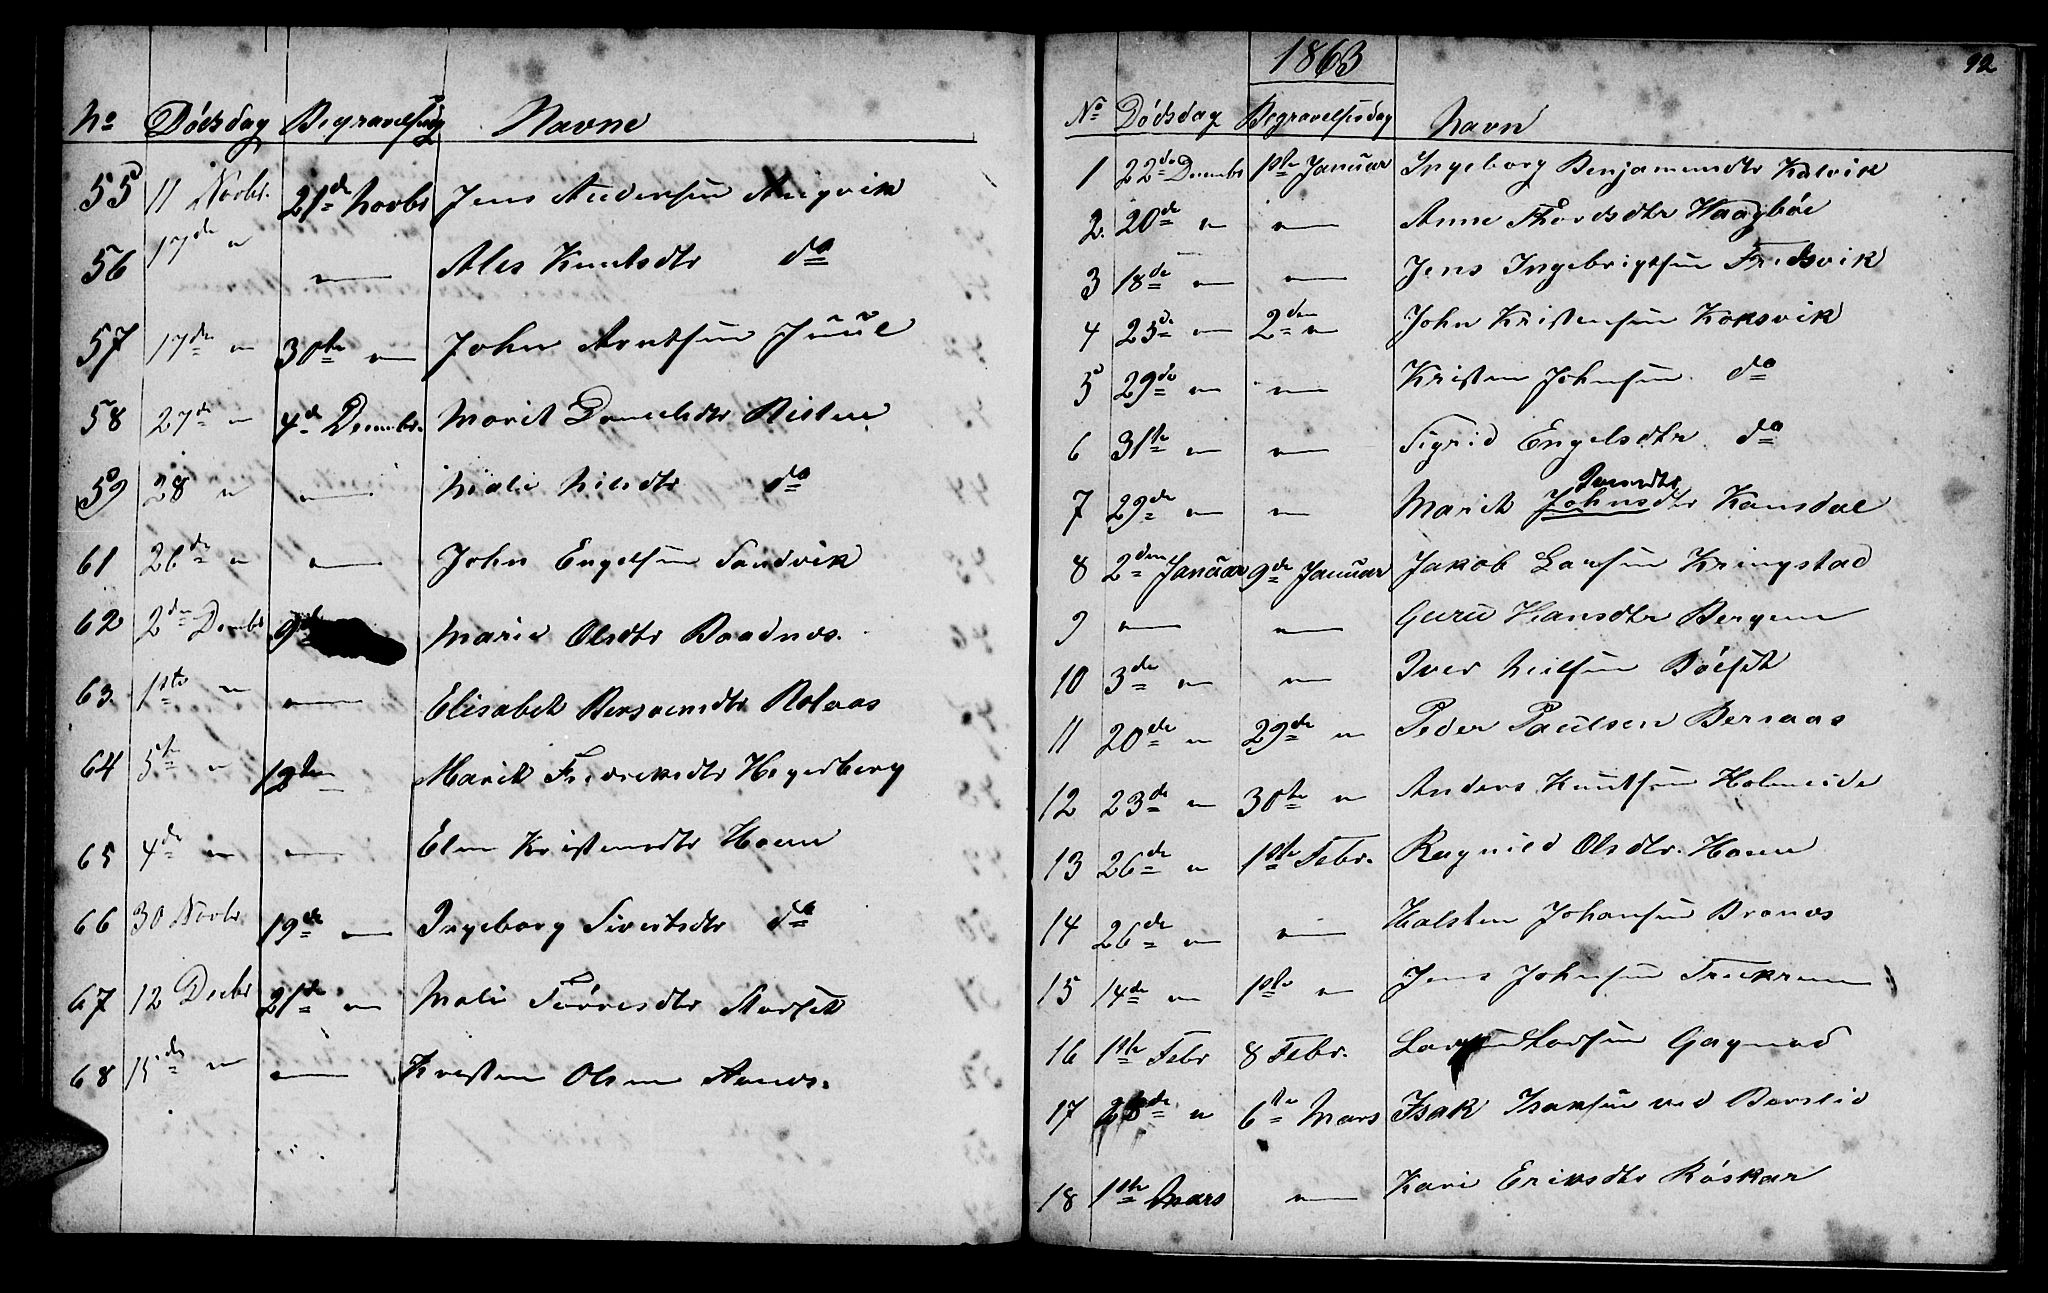 No Dødsdag Begravelsdag Navne
55 11 Novbr. 21de Novbr Jens Andersen Angvik
56 17de " — Ales Knutsdtr do
57 17de " 30te " John Arntsen Juul
58 27de " 4de Decembr. Marit Danielsdtr Risten
59 28 " — Mali Nilsdtr do
61 26de " — John Engelsen Sandvik
62 2den Decmbr 9de Marie Olsdtr Boadnes.
63 1ste " — Elisabet Bersvendtr Rolvaas
64 5te " 12te Marit Fredriksdtr Hegerberg
65 4de " — Elen Kristensdtr Hoem
66 30 Novbr 19de " Ingeborg Sivertsdtr do
67 12 Decbr 21de " Mali Torresdtr
68 15de " — Kristen Olsen
1863
92
No Dødsdag Begravelsesdag Navn
1 22de Decembr 1ste Januar Ingeborg Benjaminsdtr Kalvik
2. 20de " " Anne Thordsdtr Haagbøe
3 18de " " Jens Ingebrigtsen Fredsvik
4 25de " 2den " John Kristensen Koksvik
5 29de " " Kristen Johnsen do
6 31te " " Sigrid Engelsdtr do
Iversdtr
7 29de " " Marit Johnsdtr Kansdal
8 2den Januar 9de Januar Jakob Larsen Kringstad
9 " " Guru Hansdtr Bergem
10 3de " " Iver Nilsen Bølset
11 20de " 29de " Peder Paulsen Bersaas
12 23de " 30te " Anders Knutsen Holmeide
13 26de " 1ste Febr. Ragnild Olsdtr. Hoem
14 26de " " Halsten Johansen Bronæs
15 14de " 1ste " Jens Johnsen Trekrem
16 1ste Febr 8 Febr. Larsen Gagnad
17 28de " 6te Mars Isak Isaksen ved Berslid
18 1ste Mars " Kari Eriksdtr Røskar